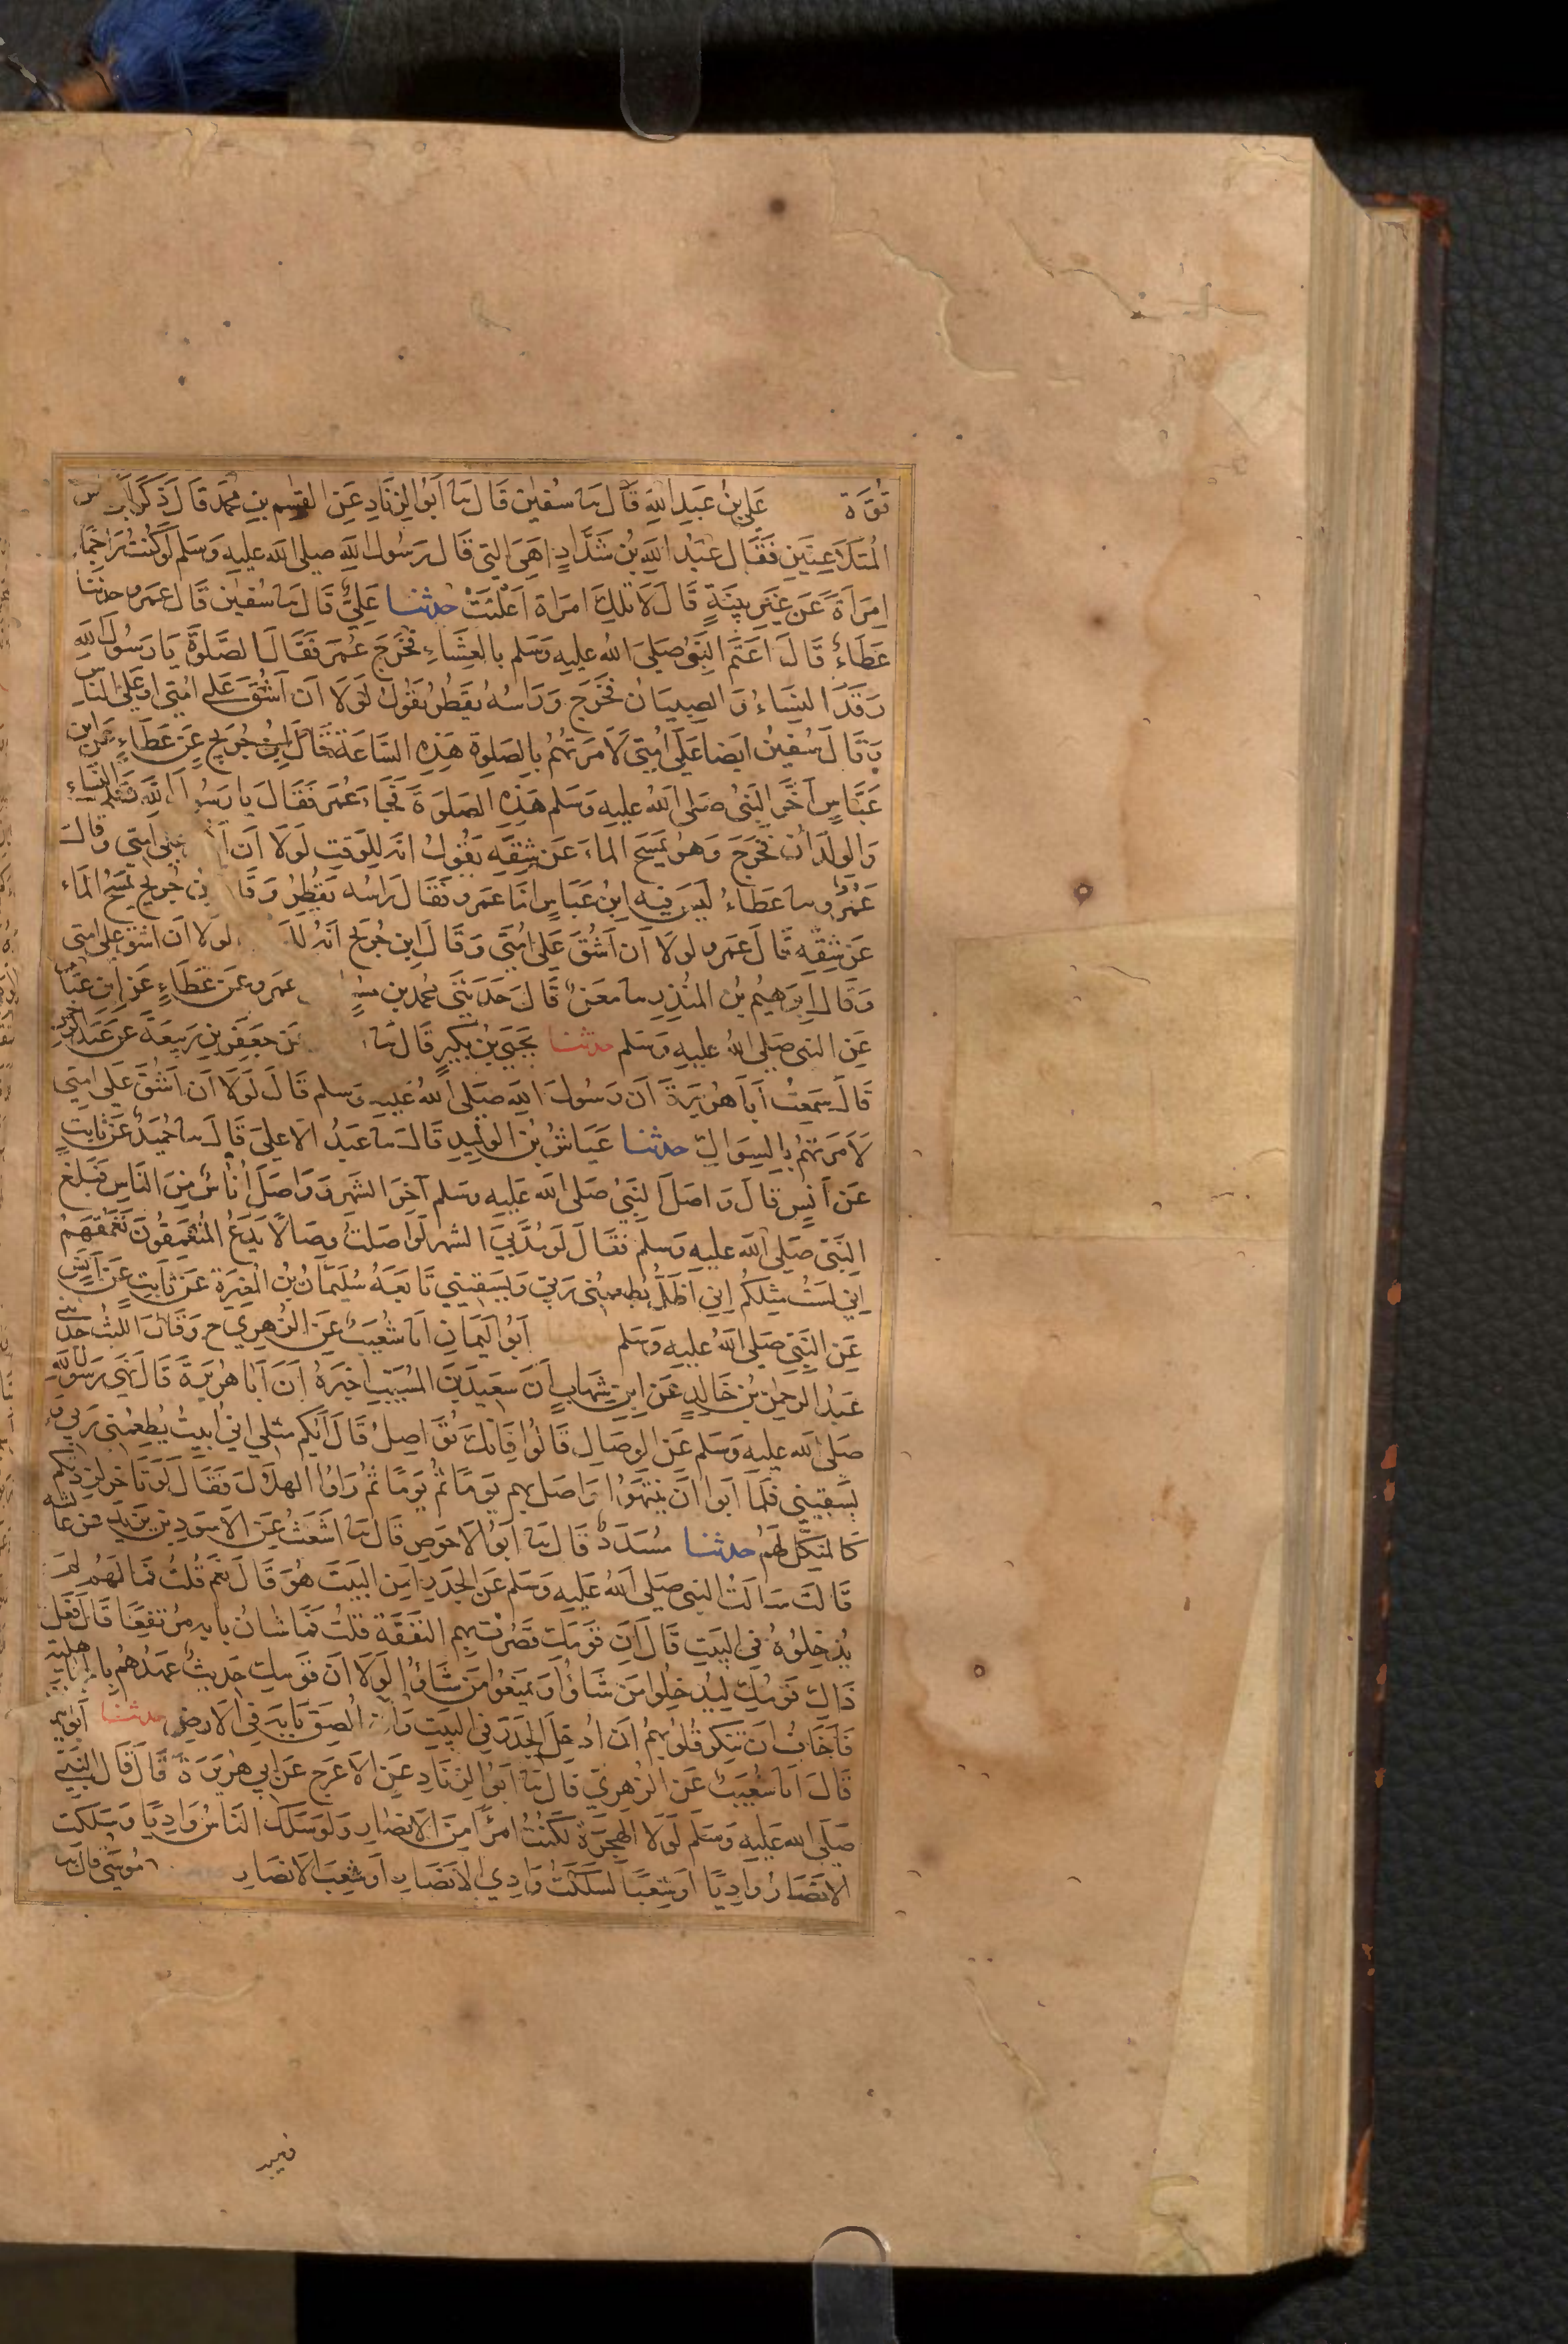 قُوَّة عَلِيُّ بْنُ عَبْدِ اللهِ قَالَ ثنا سُفْيٰن قَالَ ثنا أَبُو الزِّنَادِ عَنِ القٰسِم بنِ مُحَمَّد قَالَ ذَكَرَ ابن
المُتَلَاعِنَيْنِ فَقَالَ عَبْدُ اللهِ بْنُ شَدَّادٍ اهِيَ التِي قَالَ رَسُولُ اللهِ صلى الله عليه وسلم لَوْ كُنْتُ رَاجِمًا
امرَأةً عَن غَيْرِ بيِّنَةٍ قَالَ لَا تلكَ امرَاة اَعْلَنَتْ حدثنا عَلِيٌّ قَالَ ثنا سُفْيٰن قَالَ عَمرو حدثنا
عَطَاءٌ قَالَ اَعتَمَ النَّبِيُّ صَلَى الله عليه وَسَلم بالعِشَاءِ فَخَرَجَ عُمَر فَقَالَ الصَّلوٰةَ يَا رَسُولَ اللهِ
رَقَدَ النِسَاءُ وَ الصِبيَانُ فخَرَج وَرَاسُهُ يَقطُر يَقُولُ لَوْلَا اَن اَشُقَّ عَلى امتى او عَلى النَاس
وَقَالَ سُفْيٰنُ ايضًا عَلَى اُمتِى لَامَرتهُم بالصَلوة هَذِهِ السَّاعَةَ قَالَ ابنُ جُرَيج عَن عَطَاءٍ عَن ابن
عَبَّاسٍ اَخَّرَ النَبىُ صَلى اللهُ عليه وَسَلم هَذِهِ الصَلوةَ فَجَاءَ عُمَر فَقَالَ يا رَسُولَ اللهِ رَقد النِسَاء
وَالوِلدَانُ فخَرَجَ وَهوَ يَمسَحُ الماءَ عَن شِقِّه يَقُولُ انه لِلوَقتِ لَولَا اَن أَ على اُمتِي وقالَ
عَمْرٌو ثنا عَطَاءٌ لَيسَ فيه ابنُ عَبَاسٍ امَا عَمرو فَقَالَ رَاسُه يَقْطُرُ وَقَا بنُ جُرَيج يَمسَحُ المَاء
عَن شِقِّهِ قَالَ عَمرو لولَا اَن اَشُقَ عَلى امتِى وَقَالَ ابن جُرَيج اَنَّهُ للَو لولَا اَن اشق على امتى
وَقَالَ اِبرَهِيمُ بن المُنذِرِ ثنا معنٌ قَالَ حَدَثَنى مُحمد بن مسلِم عمرو عَن عَطَاءٍ عَن ابن عَبَّاس
عَن النبى صَلى اللهُ عليهِ وَسَلم حدثنا يَحيَى بنُ بُكَيرٍ قَالَ ثنا عَن جَعفَرِ بنِ رَبيعَةَ عَن عَبدِ الرحمن
قَالَ سَمِعتُ اَبَا هُرَيرَةَ اَن رَسُولَ اللهِ صَلى الله عَليهِ وَسلم قَالَ لَولَا اَن اَشُقَّ عَلى امتِى
لَامَرتهُم بالسِوَاكِ حدثنا عَيَّاشُ بنُ الوَلِيدِ قَالَ ثنا عَبدُ الاعلى قَالَ ثنا حُمَيدٌ عَن ثابتٍ
عَن اَنَسٍ قَالَ وَاصَلَ النَبىُّ صَلى الله عَليهِ وسَلم آخِرَ الشَهرِ وَوَاصَلَ اُنَاسٌ مِنَ النَاسِ فَبَلغَ
النَبَّى صَلى الله عليهِ وَسَلم فقَالَ لَو مُدَّ بيَ الشهر لَوَاصَلتُ وِصَالًا يَدَعُ المُتَعَمِقُونَ تَعَمُّقَهُمْ
اِنِي لَستُ مِثلَكُم اِنِي اَظَلُّ يُطعِمُنِي رَبِّي وَيَسقِينِي تَابَعَهُ سُلَيمَانُ بنُ المُغِيرَةِ عَن ثابتٍ عَن اَنَسٍ
عَنِ النَبىِّ صَلى الله عليه وَسَلم اَبُو اليَمَانِ انا شُعَيبٌ عَنِ الزُهرِي ح وَقَالَ الليثُ حَدثنى
عَبْدُ الرحمٰنِ بنُ خَالدٍ عَن ابنِ شِهَابٍ اَنَّ سَعِيدَ بنَ المُسَيّبِ اَخبَرَهُ اَنَ اَبَا هُرَيرَةَ قَالَ نَهَى رَسُولُ اللهِ
صَلى الله عليه وَسَلم عَنِ الوِصَالِ قَالُوا فَانكَ تُوَاصِلُ قَالَ اَيُّكُم مثلى انِى اَبيتُ يُطعِمُنِى رَبى وَ
يَسقِينِي فَلمَّا اَبَوا اَنْ يَنتَهُوا وَاصَلَ بهم يَومًا ثُم يَومًا ثُمَّ رَاَوُا الهلَالَ فَقَالَ لَو تَاخرَ لزدتكُم
كَالمنَكِّلِ لَهُم حدثنا مُسَدَدٌ قَالَ ثنا اَبُو الاَحوَص قَالَ ثنا اَشعَثُ عَنِ الاَسوَدِ بنِ يَزِيدَ عَن عائشة
قَالَتْ سَاَلتُ النبى صَلى الله عَليهِ وَسَلم عَنِ الجَدرِ اَمِنَ البَيتِ هُوَ قَالَ نعَم قُلتُ فَمَا لَهُم لَم
يُدخِلُوهُ فِي البَيتِ قَالَ اَنَ قَومَكِ قَصُرَتْ بِهم النَفَقَة قُلتُ فَمَا شَانُ بَابه مُرتَفِعًا قَالَ فَعَلَ
ذَاكِ قَومُكِ لِيُدخِلُوا مَن شَاؤُا وَيَمنَعُوا مَن شَاؤُا لَولَا اَن قَومَكِ حَدِيثٌ عَهدُهُم بالجَاهلية
فَاَخَافُ اَن تُنكِرَ قُلُوبُهُم اَن اُدخِلَ الجَدرَ فى البَيتِ وَاَن اُلصِقَ بَابَهُ فِى الاَرضِ حدثنا اَبو اليم
قَالَ انا شُعَيبٌ عَن الزُهرِيّ قَالَ ثنا اَبُو الزِنَادِ عَنِ الاَعرَج عَن اَبِى هُرَيرَةَ قَالَ قَالَ النَبِى
صَلَّى الله عَليهِ وَسَلَم لَولَا الهِجرَةُ لَكُنتُ امرَاً مِنَ الاَنصَارِ وَلَو سَلَكَ النَاسُ وَادِيًا وَسَلَكَتِ
الاَنصَارُ وَادِيًا اَو شِعبًا لَسَلَكتُ وَادِيَ الاَنصَارِ اَو شِعبَ الاَنصَارِ مُوسَى قَالَ ثنا